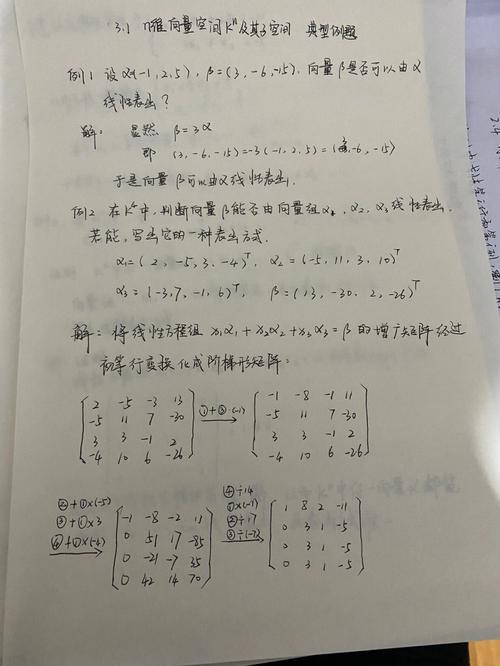 3.1 n维向量空间Kⁿ及其子空间 典型例题
例1 设α(-1,2,5), β=(3,-6,-15). 向量β是否可以由α
线性表出?
解: 显然 β=3α
即 (3,-6,-15)=-3(-1,2,5)=(3,-6,-15)
于是向量β可以由α线性表出.
例2 在K⁴中,判断向量β能否由向量组α₁,α₂,α₃线性表出.
若能,写出它的一种表出方式.
α₁=(2,-5,3,-4)ᵀ, α₂=(-5,11,3,10)ᵀ
α₃=(-3,7,-1,6)ᵀ, β=(13,-30,2,-26)ᵀ
解: 将线性方程组 x₁α₁+x₂α₂+x₃α₃=β 的增广矩阵经过
初等行变换化成阶梯形矩阵:
2 -5 -3 13
-5 11 7 -30
3 3 -1 2
-4 10 6 -26
①+③·(-1)
-1 -8 -1 11
-5 11 7 -30
3 3 -1 2
-4 10 6 -26
②+①×(-5)
③+①×3
④+①×(-4)
-1 -8 -2 11
0 51 17 -85
0 -21 -7 35
0 42 14 70
④÷14
①×(-1)
②÷17
③÷(-7)
1 8 2 -11
0 3 1 -5
0 3 1 -5
0 3 1 -5